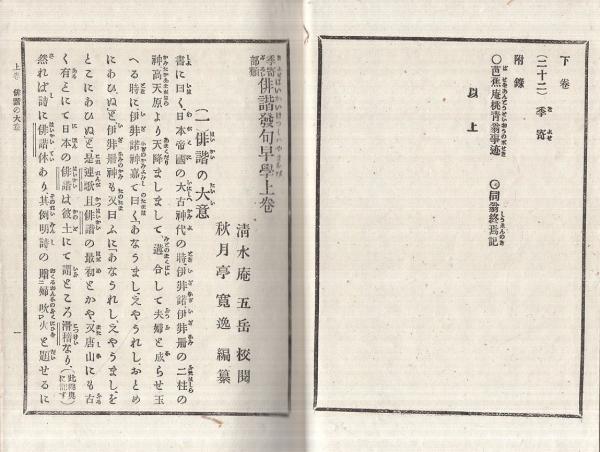 下卷
(二十二) 季寄
附錄
○芭蕉庵桃青翁事迹 ○同翁終焉記
以上
季寄部類俳諧發句早學上卷
淸水庵 五岳 校閲
秋月亭 寬逸 編纂
(一) 俳諧の大意
書に曰く、日本帝國の大古神代の時、伊弉諾、伊弉冊の二柱の
神高天原より天降ましまして、遘合して夫婦と成らせ玉
へる時に伊弉諾神嘉て曰く「あなうまし、えやうれし、おとめ
にあひぬ」と伊弉冊神も又曰ふに「あなうれし、えやうまし、を
とこにあひぬ」と、是連歌且俳諧の最初とかや、又唐山にも古
く有とにて日本の俳諧は彼土にて謂ところ滑稽なり、
然れば詩に俳諧体あり其例明詩の贈婦吹火と題せるに
上卷 俳諧の大意
一